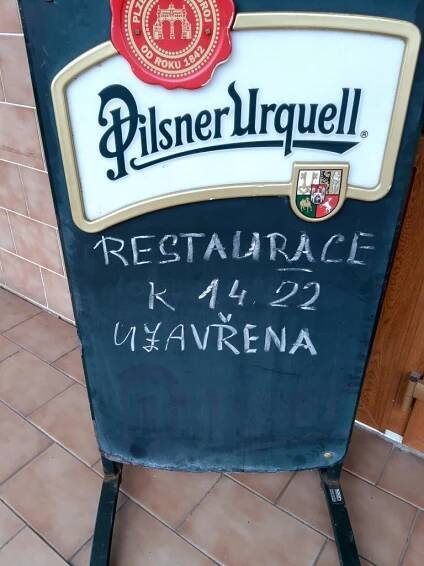 PLZ ROJ
OD ROKU 1842
Pilsner Urquell
RESTAURACE
K 14.22
UZAVŘENA